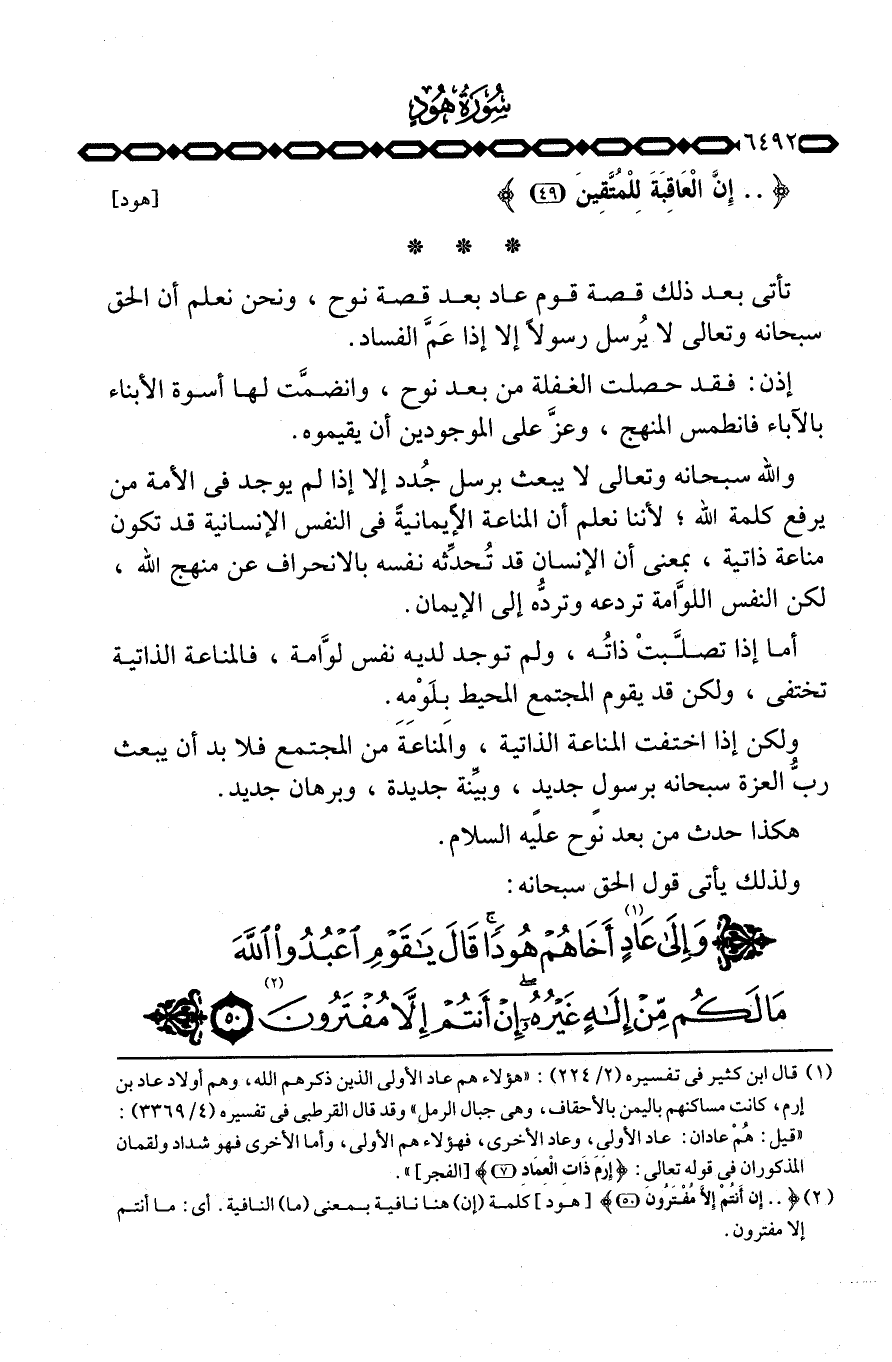 سُورَةُ هُودٍ
٦٤٩٢
﴿ .. إِنَّ الْعَاقِبَةَ لِلْمُتَّقِينَ (٤٩) ﴾ [هود]
* * *
تأتى بعد ذلك قصة قوم عاد بعد قصة نوح ، ونحن نعلم أن الحق
سبحانه وتعالى لا يُرسل رسولاً إلا إذا عَمَّ الفساد.
إذن: فقد حصلت الغفلة من بعد نوح ، وانضمَّت لها أسوة الأبناء
بالآباء فانطمس المنهج ، وعزَّ على الموجودين أن يقيموه.
والله سبحانه وتعالى لا يبعث برسل جُدد إلا إذا لم يوجد فى الأمة من
يرفع كلمة الله ؛ لأننا نعلم أن المناعة الإيمانيةً فى النفس الإنسانية قد تكون
مناعة ذاتية ، بمعنى أن الإنسان قد تُحدِّثه نفسه بالانحراف عن منهج الله ،
لكن النفس اللوَّامة تردعه وتردُّه إلى الإيمان.
أما إذا تصلَّبتْ ذاتُه ، ولم توجد لديه نفس لوَّامة ، فالمناعة الذاتية
تختفى ، ولكن قد يقوم المجتمع المحيط بِلَوْمِهِ.
ولكن إذا اختفت المناعة الذاتية ، والمناعة من المجتمع فلا بد أن يبعث
ربُّ العزة سبحانه برسولٍ جديدٍ ، وبيِّنة جديدة ، وبرهان جديد.
هكذا حدث من بعد نوح عليه السلام.
ولذلك يأتى قول الحق سبحانه:
وَإِلَىٰ عَادٍ(١) أَخَاهُمْ هُودًاۚ قَالَ يَٰقَوْمِ ٱعْبُدُواْ ٱللَّهَ
مَالَكُم مِّنْ إِلَٰهٍ غَيْرُهُۥٓۖ إِنْ أَنتُمْ إِلَّا مُفْتَرُونَ(٢) ٥٠
(١) قال ابن كثير فى تفسيره (٢/ ٢٢٤) : «هؤلاء هم عاد الأولى الذين ذكرهم الله، وهم أولاد عاد بن
إرم، كانت مساكنهم باليمن بالأحقاف، وهى جبال الرمل» وقد قال القرطبى فى تفسيره (٤/ ٣٣٦٩) :
«قيل: هُمْ عادان: عاد الأولى، وعاد الأخرى، فهؤلاء هم الأولى، وأما الأخرى فهو شداد ولقمان
المذكوران فى قوله تعالى: ﴿ إِرَمَ ذَاتِ الْعِمَادِ (٧) ﴾ [الفجر]».
(٢) ﴿ .. إِن أَنتُمْ إِلاَّ مُفْتَرُونَ (٥٠) ﴾ [هود] كلمة (إن) هنا نافية بمعنى (ما) النافية. أى: ما أنتم
إلا مفترون.